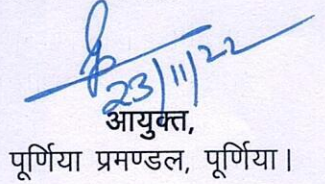 23/11/22
आयुक्त,
पूर्णिया प्रमण्डल, पूर्णिया।